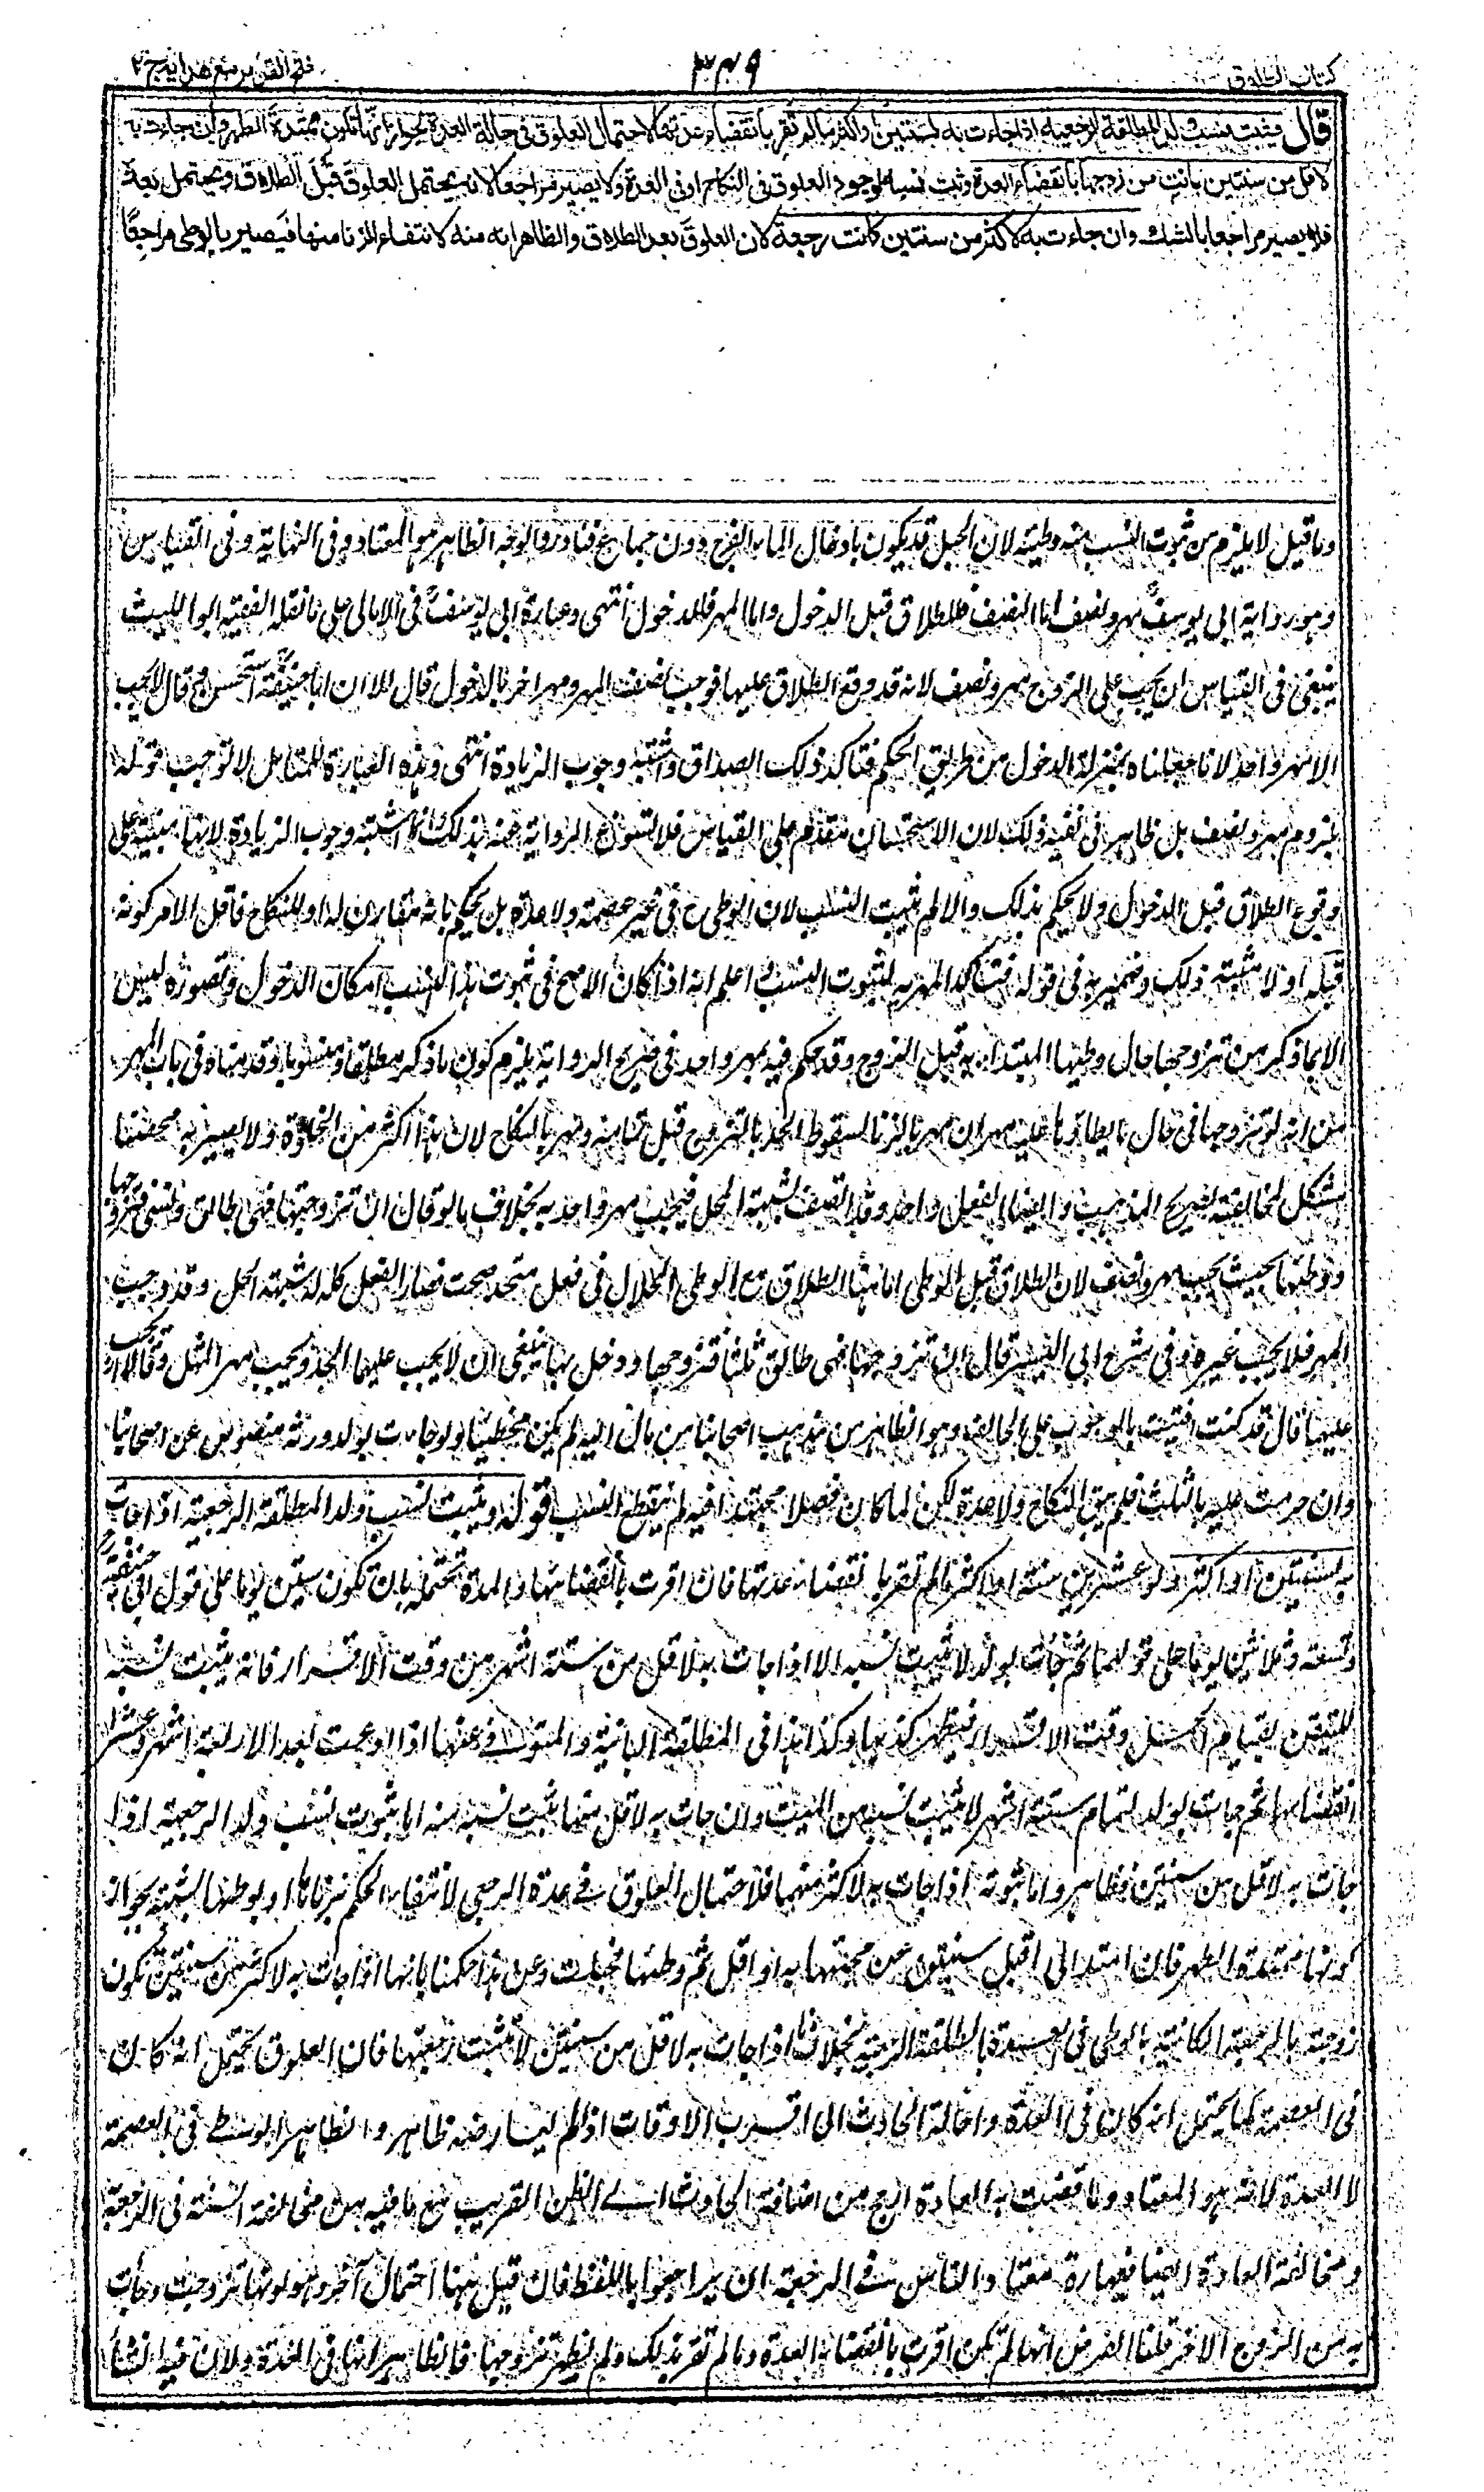 كتاب الطلاق
٣٤٩
فتح القدير مع هداية ج ٢
قال ويثبت نسب ولد المطلقة الرجعية اذا جاءت به لسنتين او اكثر ما لم تقر بانقضاء عدتها لاحتمال العلوق فى حالة العدة لجواز انها تكون ممتدة الطهر وان جاءت به
لاقل من سنتين بانت من زوجها بانقضاء العدة وثبت نسبه لوجود العلوق فى النكاح او فى العدة ولا يصير مراجعا لانه يحتمل العلوق قبل الطلاق ويحتمل بعده
فلا يصير مراجعا بالشك وان جاءت به لاكثر من سنتين كانت رجعة لان العلوق بعد الطلاق والظاهر انه منه لانتفاء الزنا منها فيصير بالوطى مراجعا
وما قيل لا يلزم من ثبوت النسب منه وطيه لان الحبل قد يكون بادخال الماء الفرج دون جماع فنادر والوجه الظاهر هو المعتاد وفى النهاية وفى القياس
وهو رواية ابى يوسف مهر ونصف اما النصف فللطلاق قبل الدخول واما المهر فللدخول انتهى وعبارة ابى يوسف فى الامالى على ما نقله الفقيه ابو الليث
ينبغى فى القياس ان يجب على الزوج مهر ونصف لانه قد وقع الطلاق عليها فوجب نصف المهر ومهر اخر بالدخول قال الا ان ابا حنيفة استحسن وقال لا يجب
الا مهر واحد لانا جعلناه بمنزلة الدخول من طريق الحكم فتاكد ذلك الصداق واشتبه وجوب الزيادة انتهى وهذه العبارة للمتامل لا توجب قوله
بلزوم مهر ونصف بل ظاهر فى نفيه ذلك لان الاستحسان متقدم على القياس فلا تسوغ الرواية عنه بذلك وانما اشتبه وجوب الزيادة لانها مبنية على
وقوع الطلاق قبل الدخول ولا يحكم بذلك والا لم يثبت النسب لان الوطى ح فى غير عصمة ولا عدة بل يحكم بانه مقارن له او للنكاح فاقل الامر كونه
قبله او لا مثبته ذلك وضمير به فى قوله فتاكد المهر به لثبوت النسب و اعلم انه اذا كان الاصح فى ثبوت هذا النسب امكان الدخول وتصوره ليس
الا بما ذكر من تزوجها حال وطيها المبتدا به قبل التزوج وقد حكم فيه بمهر واحد فى صريح الرواية يلزم كون ما ذكر مطلقا ومنسوبا وقدمناه فى باب المهر
من انه لو تزوجها فى حال ما يطاوها عليه مهران مهر بالزنا لسقوط الحد بالتزوج قبل تمامه ومهر بالنكاح لان هذا اكثر من الخلوة ولا يصير به محصنا
مشكل لمخالفته لصريح المذهب وايضا الفعل واحد وقد اتصف بشبهة المحل فيجب مهر واحد به بخلاف ما لو قال ان تزوجتها فهى طالق ونسى فتزوجها
ووطئها بحيث يجب مهر ونصف لان الطلاق قبل الوطى اما هنا الطلاق مع الوطى الحلال فى فعل متحد فصار الفعل كله له شبهة الحل وقد وجب
المهر فلا يجب غيره وفى شرح ابى اليسر قال ان تزوجها فهى طالق ثلثا فتزوجها ودخل بها ينبغى ان لا يجب عليهما الحد ويجب مهر المثل وقالا
عليهما قال قد كنت افتيت بالوجوب على الحالف وهو الظاهر من مذهب اصحابنا من مال اليه لم يكن مخطيا ولو جاءت بولد ورثه منصوص عن اصحابنا
وان حرمت عليه بالثلث فلم يبق النكاح ولا عدة لكن لما كان فصلا مجتهدا فيه لم ينقطع النسب قوله ويثبت نسب ولد المطلقة الرجعية اذا جاءت
به لسنتين او اكثر ولو عشرين سنة او اكثر ما لم تقر بانقضاء عدتها فان اقرت بانقضائها والمدة تحتمله بان تكون ستين يوما على قول ابى حنيفة
وتسعة وثلاثين يوما على قولهما ثم جاءت بولد لا يثبت نسبه الا اذا جاءت به لاقل من ستة اشهر من وقت الاقرار فانه يثبت نسبه
للتيقن بقيام الحمل وقت الاقرار فيظهر كذبها وكذا هذا فى المطلقة البائنة والمتوفى عنها اذا ادعت بعد الاربعة اشهر وعشر
انقضاءها ثم جاءت بولد لتمام ستة اشهر لا يثبت نسبه من الميت وان جاءت به لاقل منها ثبت نسبه منه اما ثبوت نسب ولد الرجعية اذا
جاءت به لاقل من سنتين فظاهر واما ثبوته اذا جاءت به لاكثر منهما فلاحتمال العلوق فى عدة الرجعى لانتفاء الحكم بزناها او بوطئها بشبهة لجواز
كونها ممتدة الطهر فان امتد الى قبل سنتين من مجيئها به او اقل ثم وطئها فحبلت وعن هذا حكمنا بانها اذا جاءت به لاكثر من سنتين تكون
زوجته بالرجعة الكائنة بالوطى فى العدة بالطلقة الرجعية بخلاف ما اذا جاءت به لاقل من سنتين لا تثبت رجعتها فان العلوق يحتمل انه كان
فى العصمة كما يحتمل انه كان فى العدة واحالة الحادث الى اقرب الاوقات اذا لم يعارضه ظاهر والظاهر الوطى فى العصمة
لا العدة لانه هو المعتاد وما قضت به العادة ارجح من اضافة الحادث الى الظن القريب مع ما فيه من مخالفة السنة فى الرجعة
ومخالفة العادة ايضا فيها معتاد الناس فى الرجعة ان يراجعوا باللفظ فان قيل هنا احتمال آخر وهو كونها تزوجت وجاءت
به من الزوج الاخر قلنا الفرض انها لم تكن اقرت بانقضاء العدة وما لم تقر بذلك ولم يظهر تزوجها فالظاهر انها فى العدة ولان فيه انشاء